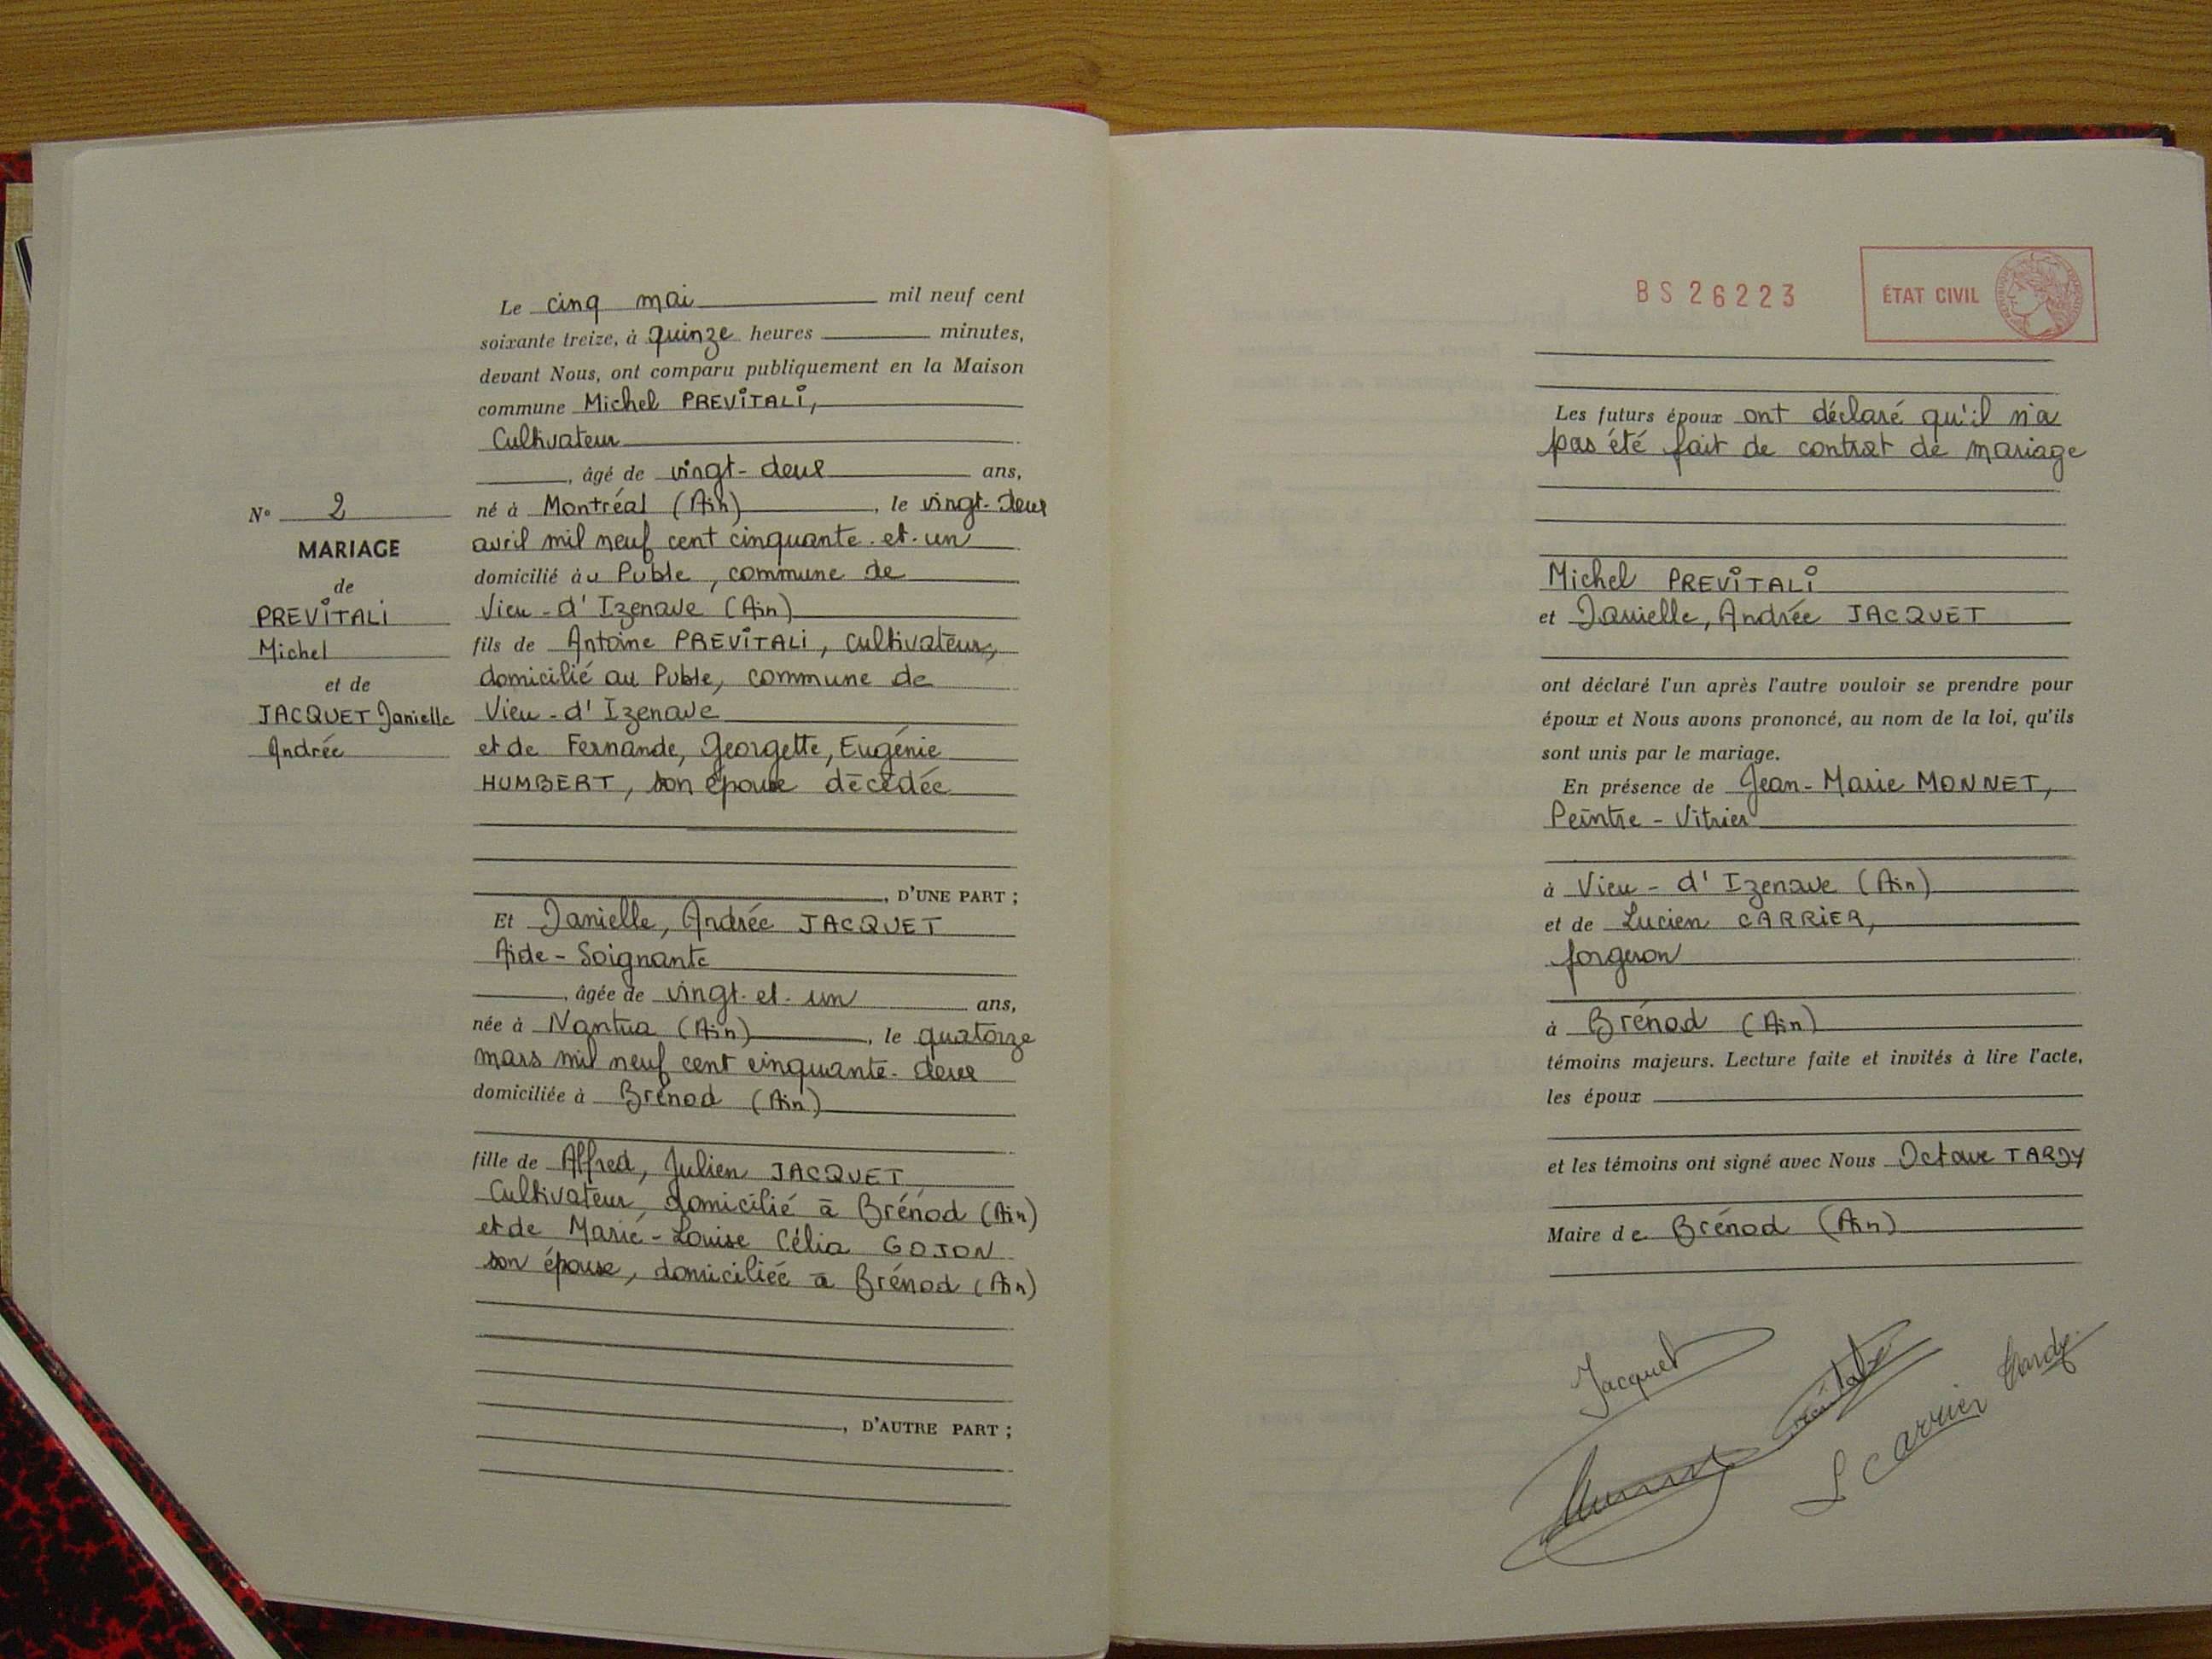 N° 2
MARIAGE
de
PREViTALi
Michel
et de
JACQUET Danielle
Andrée
Le cinq mai mil neuf cent
soixante treize, à quinze heures minutes,
devant Nous, ont comparu publiquement en la Maison
commune Michel PREViTALi,
Cultivateur
, âgé de vingt-deux ans,
né à Montréal (Ain), le vingt-deux
avril mil neuf cent cinquante-et-un
domicilié àu Puble, commune de
Vieu-d'Izenave (Ain)
fils de Antoine PREViTALi, cultivateur,
domicilié au Puble, commune de
Vieu-d'Izenave
et de Fernande, Georgette, Eugénie
HUMBERT, son épouse décédée
, D'UNE PART ;
Et Danielle, Andrée JACQUET
Aide-Soignante
, âgée de vingt-et-un ans,
née à Nantua (Ain), le quatorze
mars mil neuf cent cinquante-deux
domiciliée à Brénod (Ain)
fille de Alfred, Julien JACQUET
Cultivateur, domicilié à Brénod (Ain)
et de Marie-Louise Célia GOJON
son épouse, domiciliée à Brénod (Ain)
, D'AUTRE PART ;
BS 26223
ÉTAT CIVIL
Les futurs époux ont déclaré qu'il n'a
pas été fait de contrat de mariage
Michel PREViTALi
et Danielle, Andrée JACQUET
ont déclaré l'un après l'autre vouloir se prendre pour
époux et Nous avons prononcé, au nom de la loi, qu'ils
sont unis par le mariage.
En présence de Jean-Marie MONNET,
Peintre-Vitrier
à Vieu-d'Izenave (Ain)
et de Lucien CARRiER,
forgeron
à Brénod (Ain)
témoins majeurs. Lecture faite et invités à lire l'acte,
les époux
et les témoins ont signé avec Nous Octave TARDY
Maire de Brénod (Ain)
Jacquet
Tardy
L Carrier